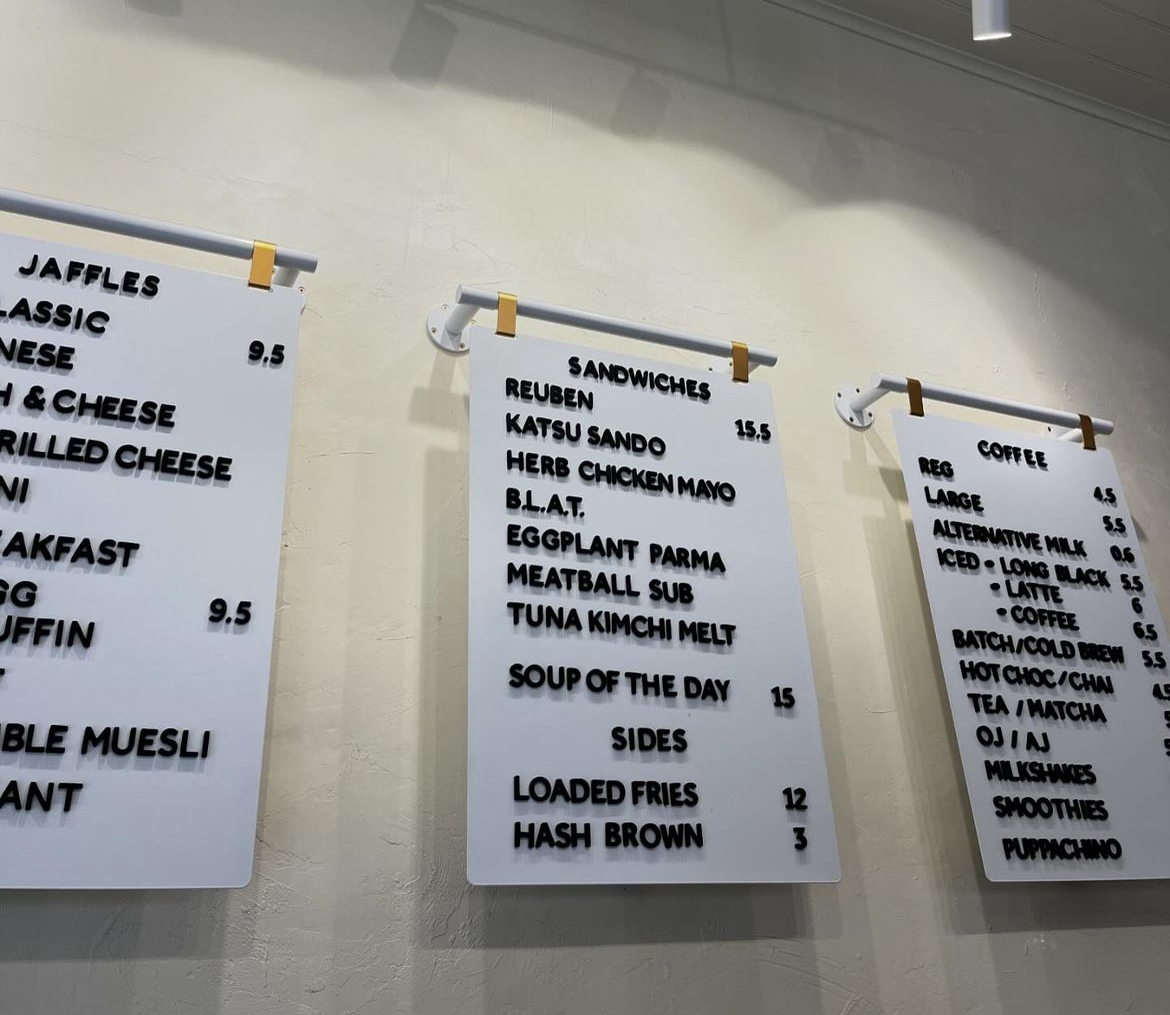 JAFFLES
LASSIC 9.5
NESE
H & CHEESE
RILLED CHEESE
NI
EAKFAST
GG 9.5
UFFIN
BLE MUESLI
ANT
SANDWICHES
REUBEN 15.5
KATSU SANDO
HERB CHICKEN MAYO
B.L.A.T.
EGGPLANT PARMA
MEATBALL SUB
TUNA KIMCHI MELT
SOUP OF THE DAY 15
SIDES
LOADED FRIES 12
HASH BROWN 3
COFFEE
REG 4.5
LARGE 5.5
ALTERNATIVE MILK 0.6
ICED - LONG BLACK 5.5
- LATTE 6
- COFFEE 6.5
BATCH/COLD BREW 5.5
HOT CHOC/CHAI 4.5
TEA / MATCHA
OJ / AJ
MILKSHAKES
SMOOTHIES
PUPPACHINO